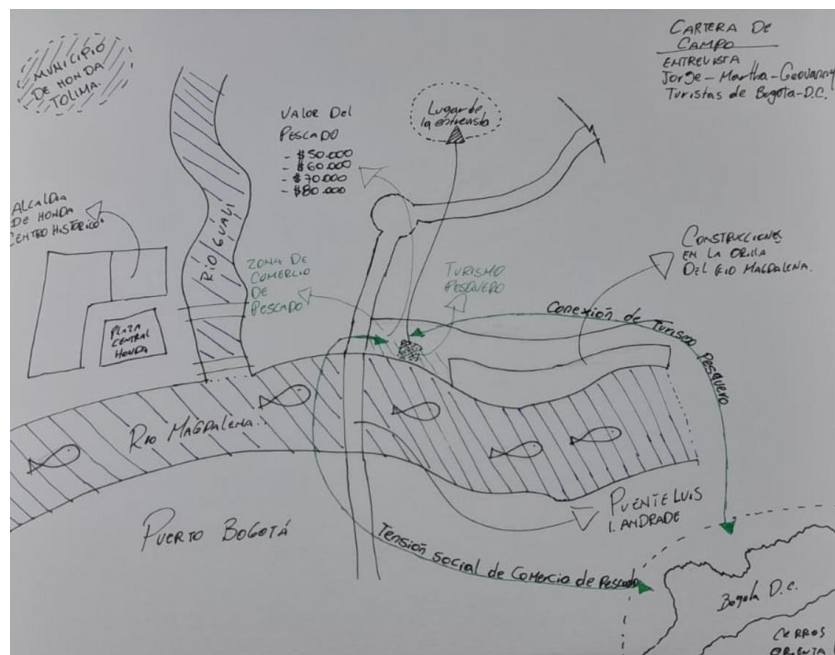 MUNICIPIO
DE HONDA
TOLIMA.
CARTERA DE
CAMPO
ENTREVISTA
Jorge - Martha - Geovanny
Turistas de Bogota-D.C.
VALOR DEL
PESCADO
- $50.000
- $60.000
- $70.000
- $80.000
Lugar de
la entrevista
ALCALDIA
DE HONDA
CENTRO HISTÓRICO
RIO GUALI
ZONA DE
COMERCIO
DE
PESCADO
TURISMO
PESQUERO
CONSTRUCCIONES
EN LA ORILLA
DEL RIO MAGDALENA.
Conexión de Turismo Pesquero
PLAZA
CENTRAL
HONDA
RIO MAGDALENA
PUERTO BOGOTÁ
PUENTE LUIS
I. ANDRADE
Tensión social de Comercio de Pescado
Bogota D.C.
CERROS
ORIENTA